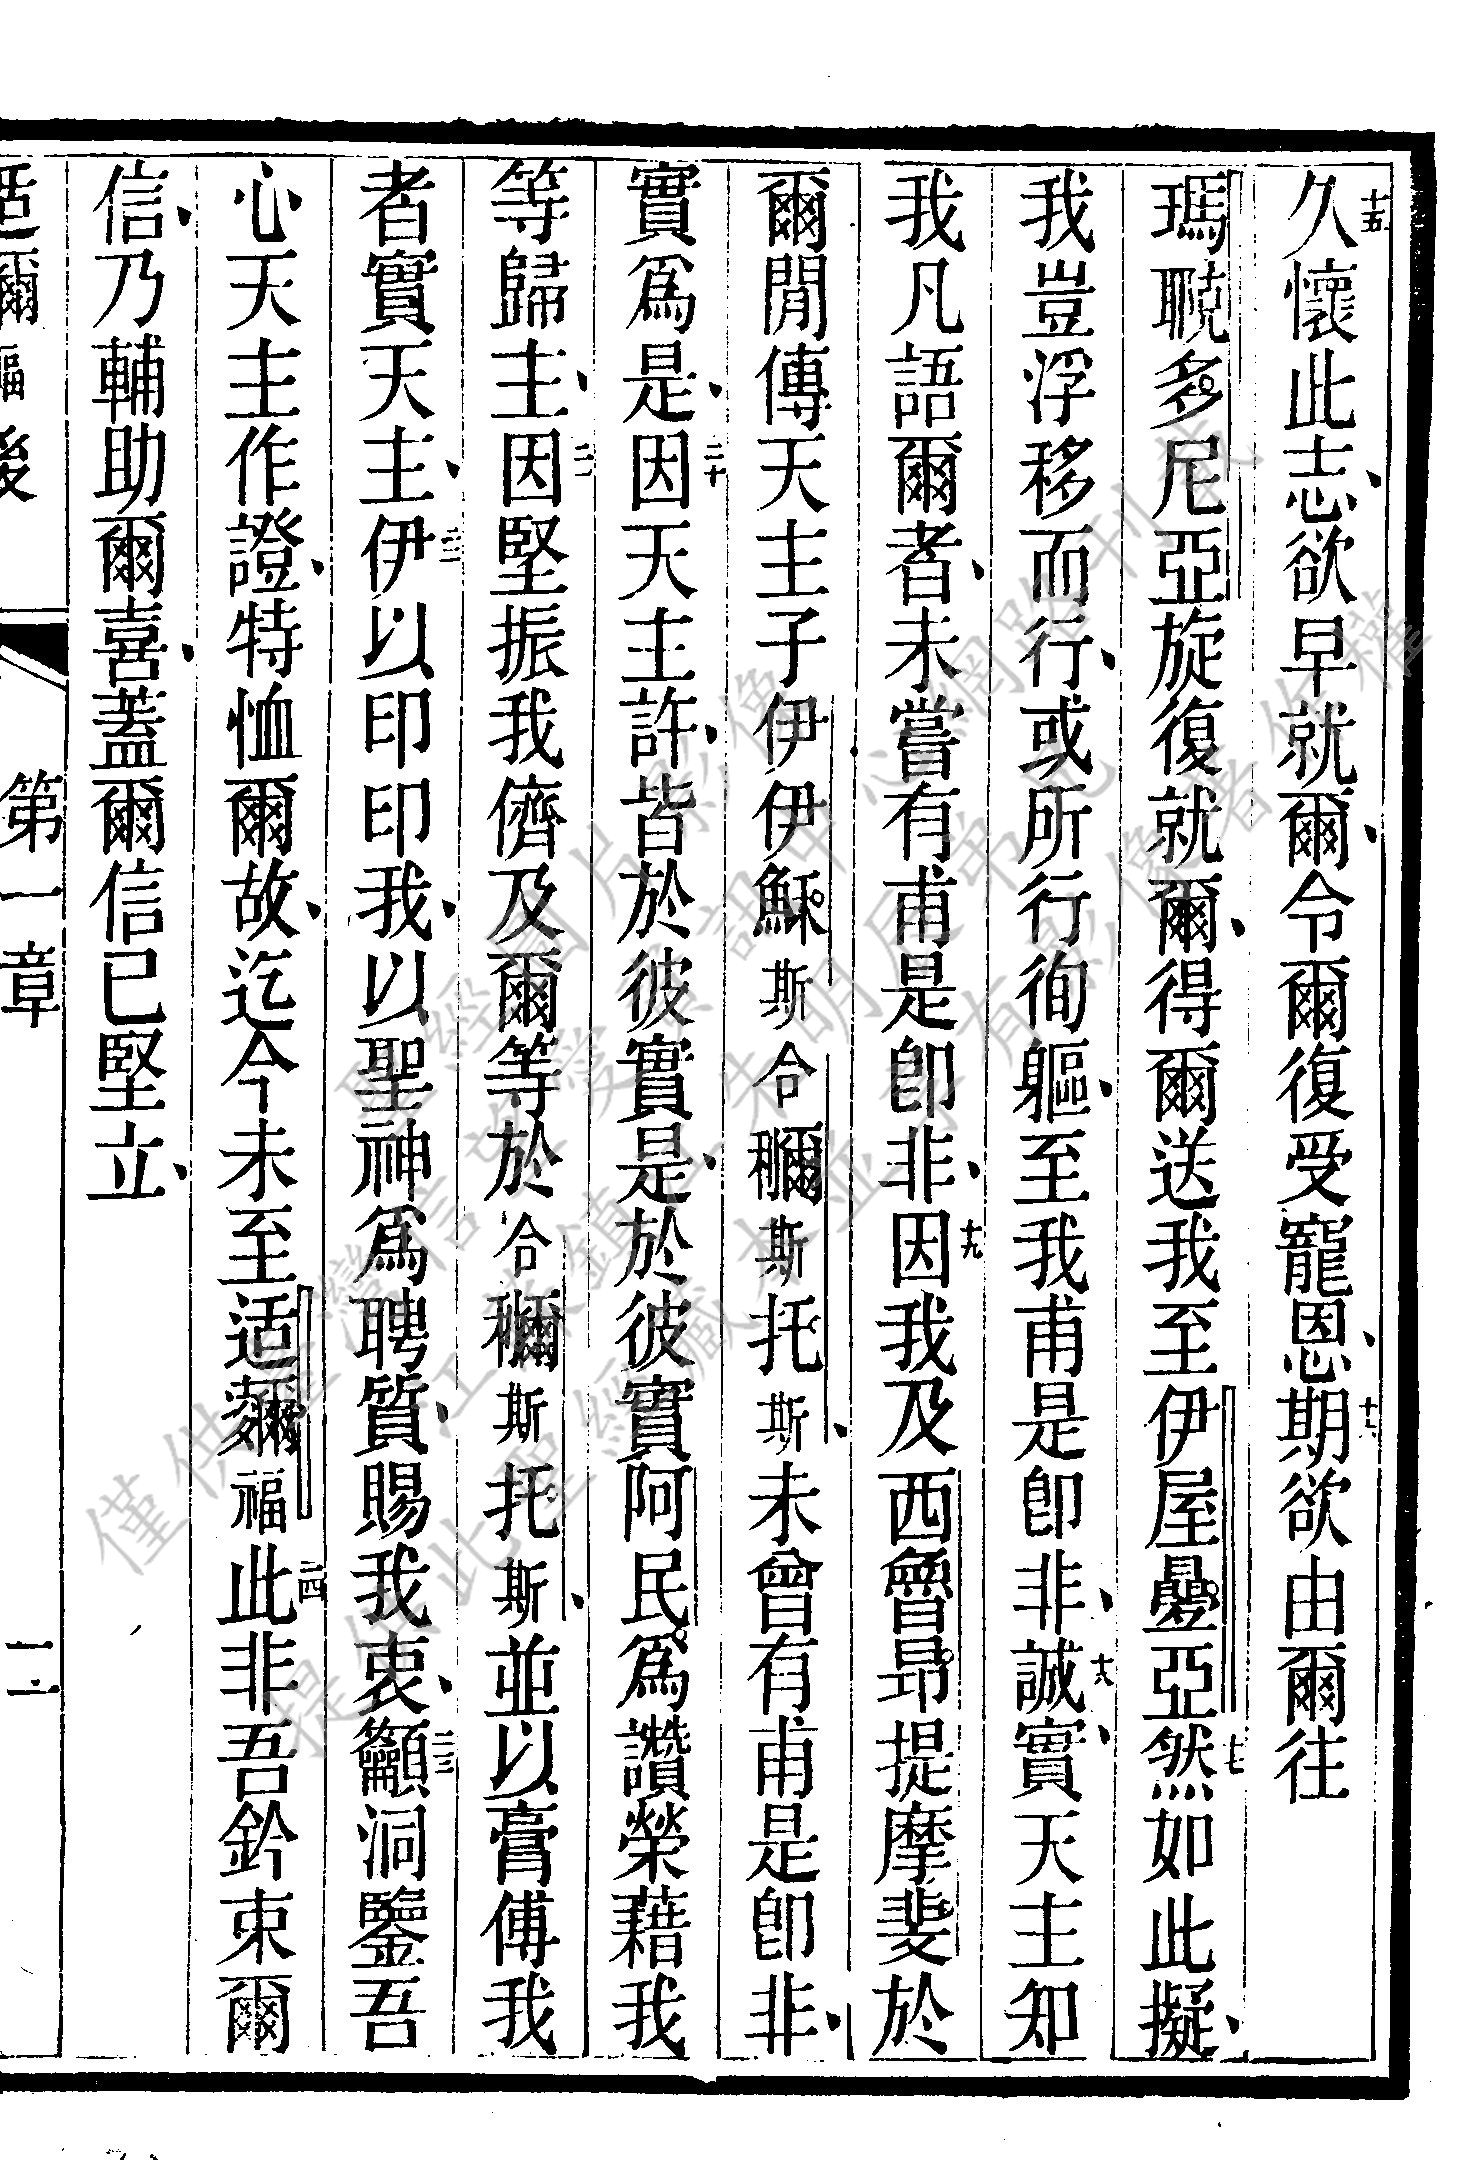 十五久懷此志、欲早就爾、令爾復受寵恩、十六期欲由爾往
瑪聭多尼亞旋復就爾、得爾送我至伊屋疊亞十七然如此擬、
我豈浮移而行、或所行徇軀、至我甫是卽非、十八誠實、天主知
我凡語爾者、未嘗有甫是卽非、十九因我及西魯昂提摩斐於
爾閒傳天主子伊伊穌斯合穪斯托斯、未曾有甫是卽非、
實爲是、二十因天主許、皆於彼實是、於彼實阿民爲讚榮藉我
等歸主、二一因堅振我儕及爾等於合穪斯托斯、並以膏傅我
者實天主、二二伊以印印我、以聖神爲聘質、賜我衷、二三籲洞鑒吾
心天主作證、特恤爾故、迄今未至适薾福二四此非吾鈐束爾
信、乃輔助爾喜、蓋爾信已堅立、
适爾福後 第一章 二
僅供臺灣信望愛